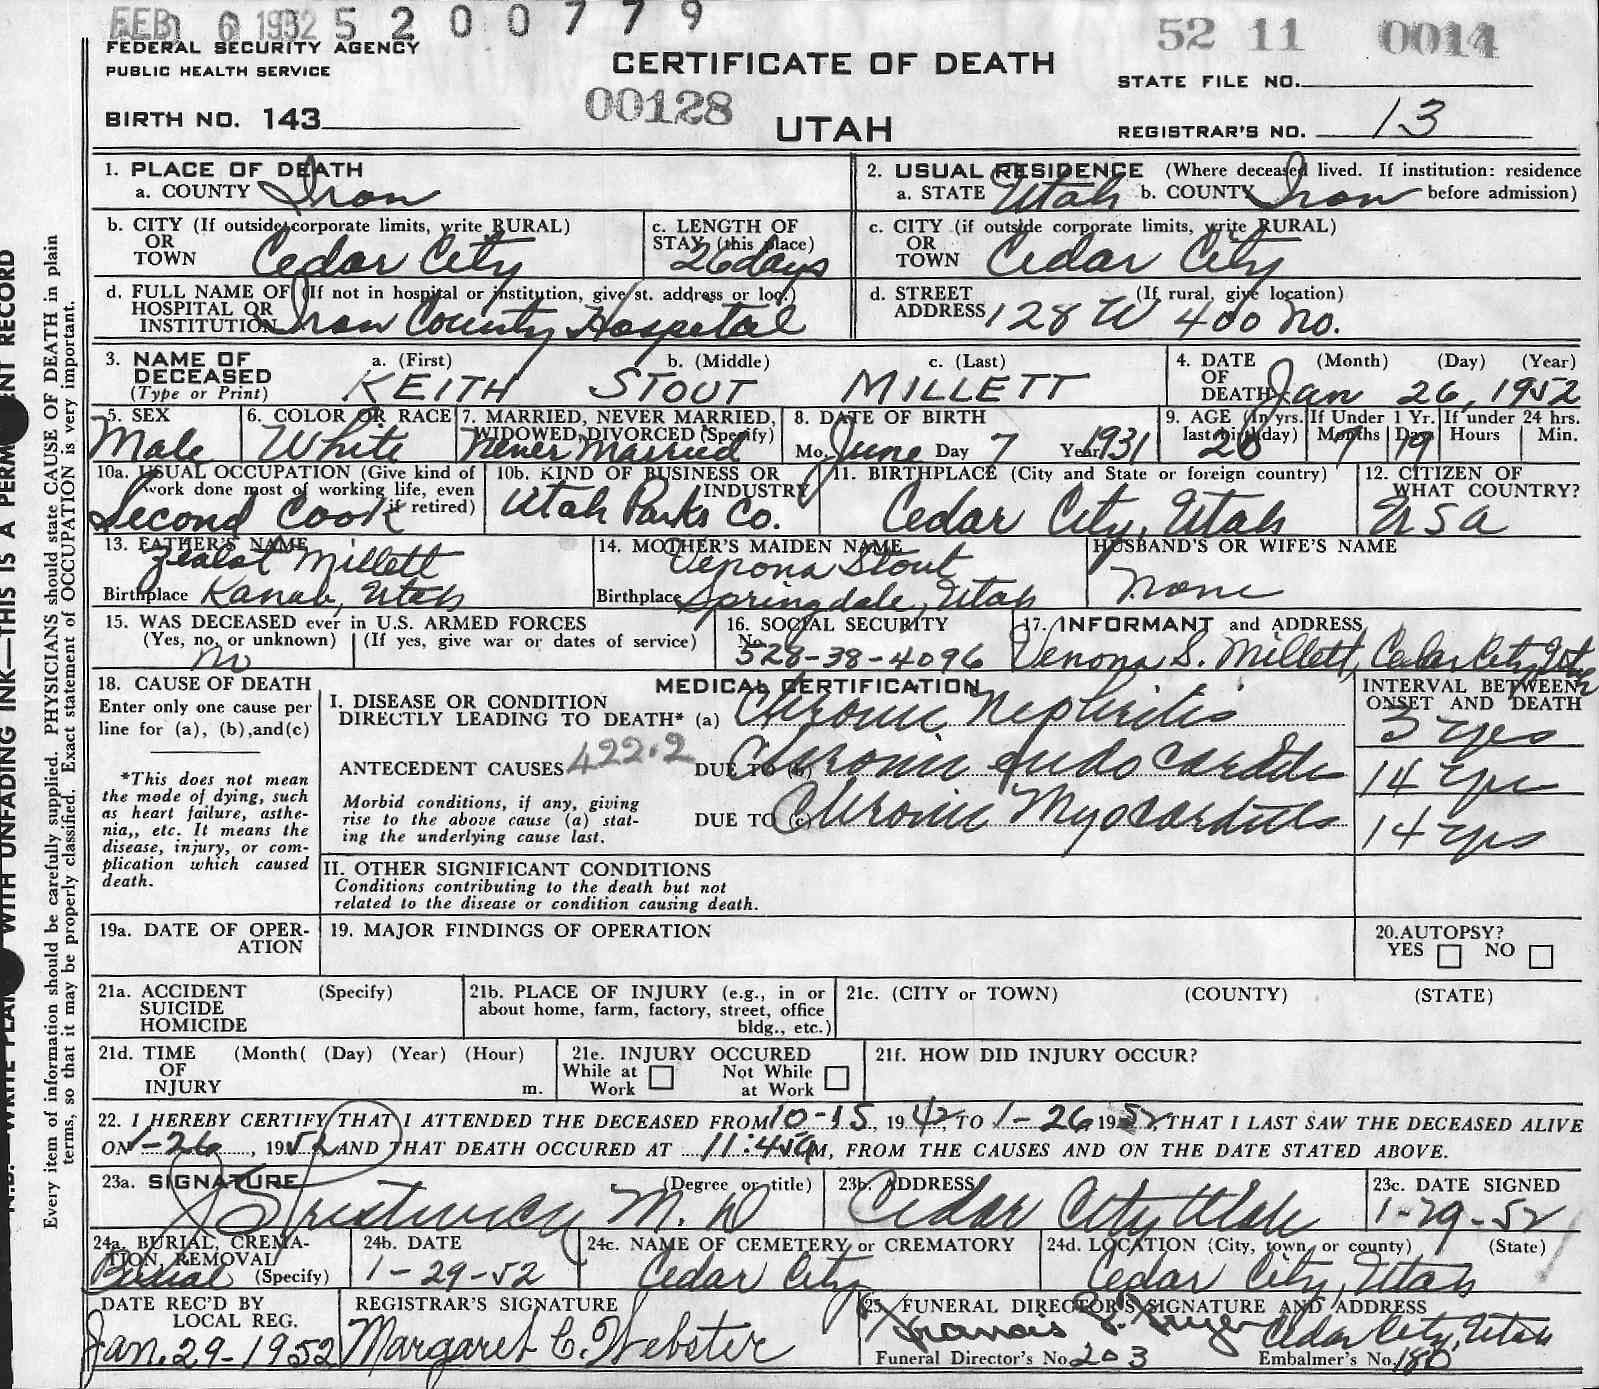 FEB 6 1952 5 2 0 0 7 7 9
52 11 0014
FEDERAL SECURITY AGENCY
PUBLIC HEALTH SERVICE
CERTIFICATE OF DEATH
STATE FILE NO.
BIRTH NO. 143
00128
UTAH
REGISTRAR'S NO. 13
1. PLACE OF DEATH
a. COUNTY Iron
2. USUAL RESIDENCE (Where deceased lived. If institution: residence before admission)
a. STATE Utah b. COUNTY Iron
b. CITY (If outside corporate limits, write RURAL)
OR
TOWN Cedar City
c. LENGTH OF
STAY (this place)
26 days
c. CITY (if outside corporate limits, write RURAL)
OR
TOWN Cedar City
d. FULL NAME OF (If not in hospital or institution, give st. address or loc.)
HOSPITAL OR
INSTITUTION Iron County Hospital
d. STREET (If rural, give location)
ADDRESS 128 W 400 No.
3. NAME OF
DECEASED
(Type or Print)
a. (First) b. (Middle) c. (Last)
KEITH STOUT MILLETT
4. DATE (Month) (Day) (Year)
OF
DEATH Jan 26, 1952
5. SEX
Male
6. COLOR OR RACE
White
7. MARRIED, NEVER MARRIED,
WIDOWED, DIVORCED (Specify)
Never Married
8. DATE OF BIRTH
Mo. June Day 7 Year 1931
9. AGE (In yrs. last birthday) 20
If Under 1 Yr. Months 7 Days 19
If under 24 hrs. Hours Min.
10a. USUAL OCCUPATION (Give kind of
work done most of working life, even
if retired)
Second Cook
10b. KIND OF BUSINESS OR
INDUSTRY
Utah Parks Co.
11. BIRTHPLACE (City and State or foreign country)
Cedar City, Utah
12. CITIZEN OF
WHAT COUNTRY?
USA
13. FATHER'S NAME
Millett
Birthplace Kanab, Utah
14. MOTHER'S MAIDEN NAME
Venona Stout
Birthplace Springdale, Utah
HUSBAND'S OR WIFE'S NAME
None
15. WAS DECEASED ever in U.S. ARMED FORCES
(Yes, no, or unknown) (If yes, give war or dates of service)
no
16. SOCIAL SECURITY
No.
528-38-4096
17. INFORMANT and ADDRESS
Venona S. Millett, Cedar City, Utah
18. CAUSE OF DEATH
Enter only one cause per
line for (a), (b), and (c)
*This does not mean
the mode of dying, such
as heart failure, asthe-
nia,, etc. It means the
disease, injury, or com-
plication which caused
death.
MEDICAL CERTIFICATION
INTERVAL BETWEEN
ONSET AND DEATH
I. DISEASE OR CONDITION
DIRECTLY LEADING TO DEATH* (a) Chronic Nephritis
3 yrs
ANTECEDENT CAUSES 422.2 DUE TO (b) Chronic Endocarditis
14 yrs
Morbid conditions, if any, giving
rise to the above cause (a) stat-
ing the underlying cause last.
DUE TO (c) Chronic Myocarditis
14 yrs
II. OTHER SIGNIFICANT CONDITIONS
Conditions contributing to the death but not
related to the disease or condition causing death.
19a. DATE OF OPER-
ATION
19. MAJOR FINDINGS OF OPERATION
20. AUTOPSY?
YES NO
21a. ACCIDENT (Specify)
SUICIDE
HOMICIDE
21b. PLACE OF INJURY (e.g., in or
about home, farm, factory, street, office
bldg., etc.)
21c. (CITY or TOWN) (COUNTY) (STATE)
21d. TIME (Month( (Day) (Year) (Hour)
OF
INJURY m.
21e. INJURY OCCURED
While at Work Not While at Work
21f. HOW DID INJURY OCCUR?
22. I HEREBY CERTIFY THAT I ATTENDED THE DECEASED FROM 10-15, 1942, TO 1-26 1952 THAT I LAST SAW THE DECEASED ALIVE
ON 1-26, 1952 AND THAT DEATH OCCURED AT 11:45 a M, FROM THE CAUSES AND ON THE DATE STATED ABOVE.
23a. SIGNATURE (Degree or title)
M. D
23b. ADDRESS
Cedar City Utah
23c. DATE SIGNED
1-29-52
24a. BURIAL, CREMA-
TION, REMOVAL
(Specify)
Burial
24b. DATE
1-29-52
24c. NAME OF CEMETERY or CREMATORY
Cedar City
24d. LOCATION (City, town, or county) (State)
Cedar City, Utah
DATE REC'D BY
LOCAL REG.
Jan. 29-1952
REGISTRAR'S SIGNATURE
Margaret C. Webster
25. FUNERAL DIRECTOR'S SIGNATURE AND ADDRESS
Francis Cedar City, Utah
Funeral Director's No. 203 Embalmer's No. 180
WITH UNFADING INK—THIS IS A PERM ENT RECORD
Every item of information should be carefully supplied. PHYSICIANS should state CAUSE OF DEATH in plain
terms, so that it may be properly classified. Exact statement of OCCUPATION is very important.